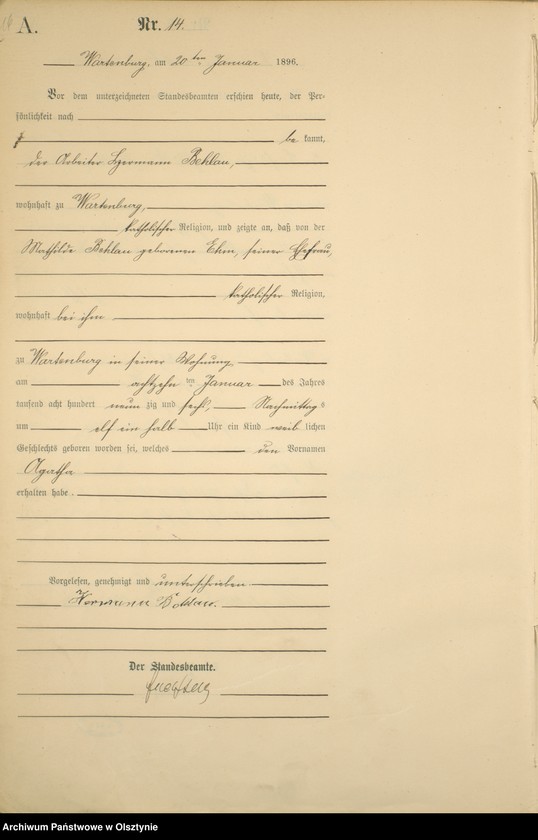 A.
Nr. 14.
Wartenburg, am 20 ten Januar 1896.
Vor dem unterzeichneten Standesbeamten erschien heute, der Per-
sönlichkeit nach
be kannt,
der Arbeiter Hermann Behlau,
wohnhaft zu Wartenburg,
katholischer Religion, und zeigte an, daß von der
Mathilde Behlau geborenen Ehm, seiner Ehefrau,
katholischer Religion,
wohnhaft bei ihm
zu Wartenburg in seiner Wohnung
am achtzehn ten Januar des Jahres
tausend acht hundert neun zig und sechs, Nachmittags
um elf ein halb Uhr ein Kind weib lichen
Geschlechts geboren worden sei, welches den Vornamen
Agatha
erhalten habe.
Vorgelesen, genehmigt und unterschrieben
Hermann Behlau.
Der Standesbeamte.
Archiwum Państwowe w Olsztynie